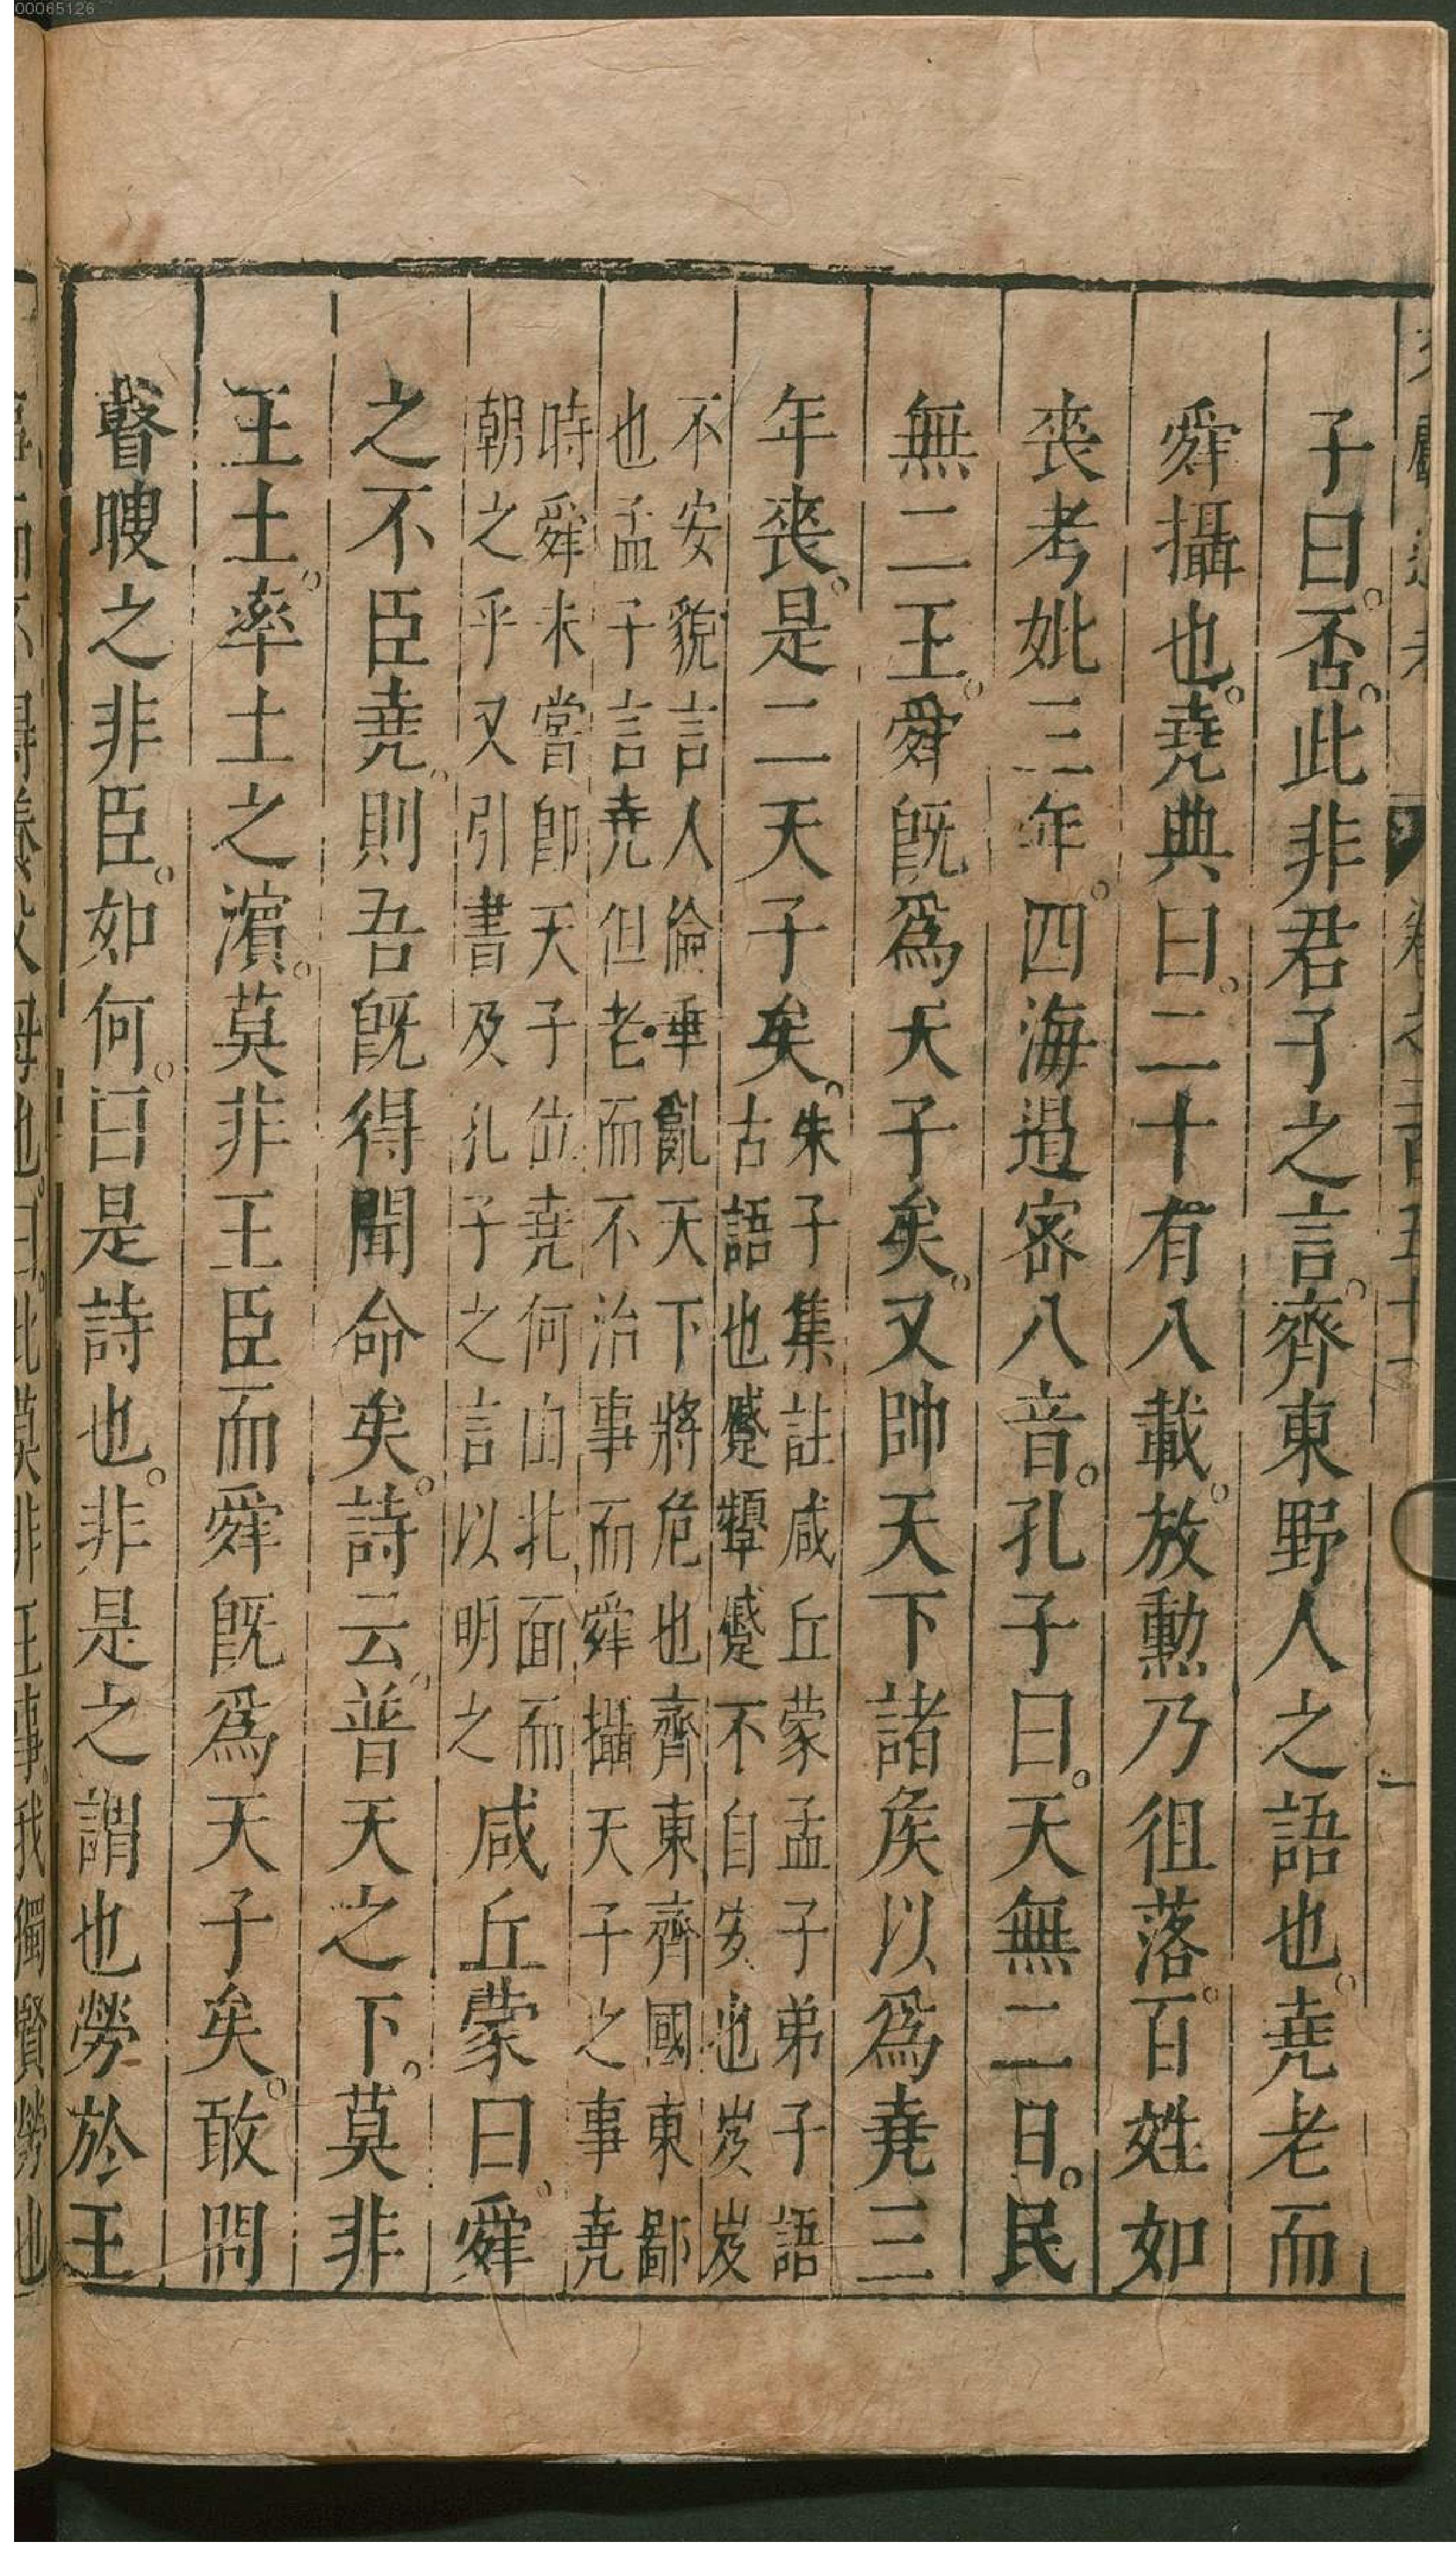 00065126
子曰。否。此非君子之言。齊東野人之語也。堯老而
舜攝也。堯典曰。二十有八載。放勳乃徂落。百姓如
喪考妣三年。四海遏密八音。孔子曰。天無二日。民
無二王。舜旣爲天子矣。又帥天下諸侯以爲堯三
年喪。是二天子矣。朱子集註咸丘蒙孟子弟子語
古語也蹙顰蹙不自安也岌岌
不安貌言人倫乖亂天下將危也齊東齊國東鄙
也孟子言堯但老而不治事而舜攝天子之事堯
時舜未嘗卽天子位堯何由北面而
朝之乎又引書及孔子之言以明之咸丘蒙曰。舜
之不臣堯。則吾旣得聞命矣。詩云。普天之下。莫非
王土。率土之濱。莫非王臣而舜旣爲天子矣。敢問
瞽瞍之非臣。如何。曰是詩也。非是之謂也勞於王